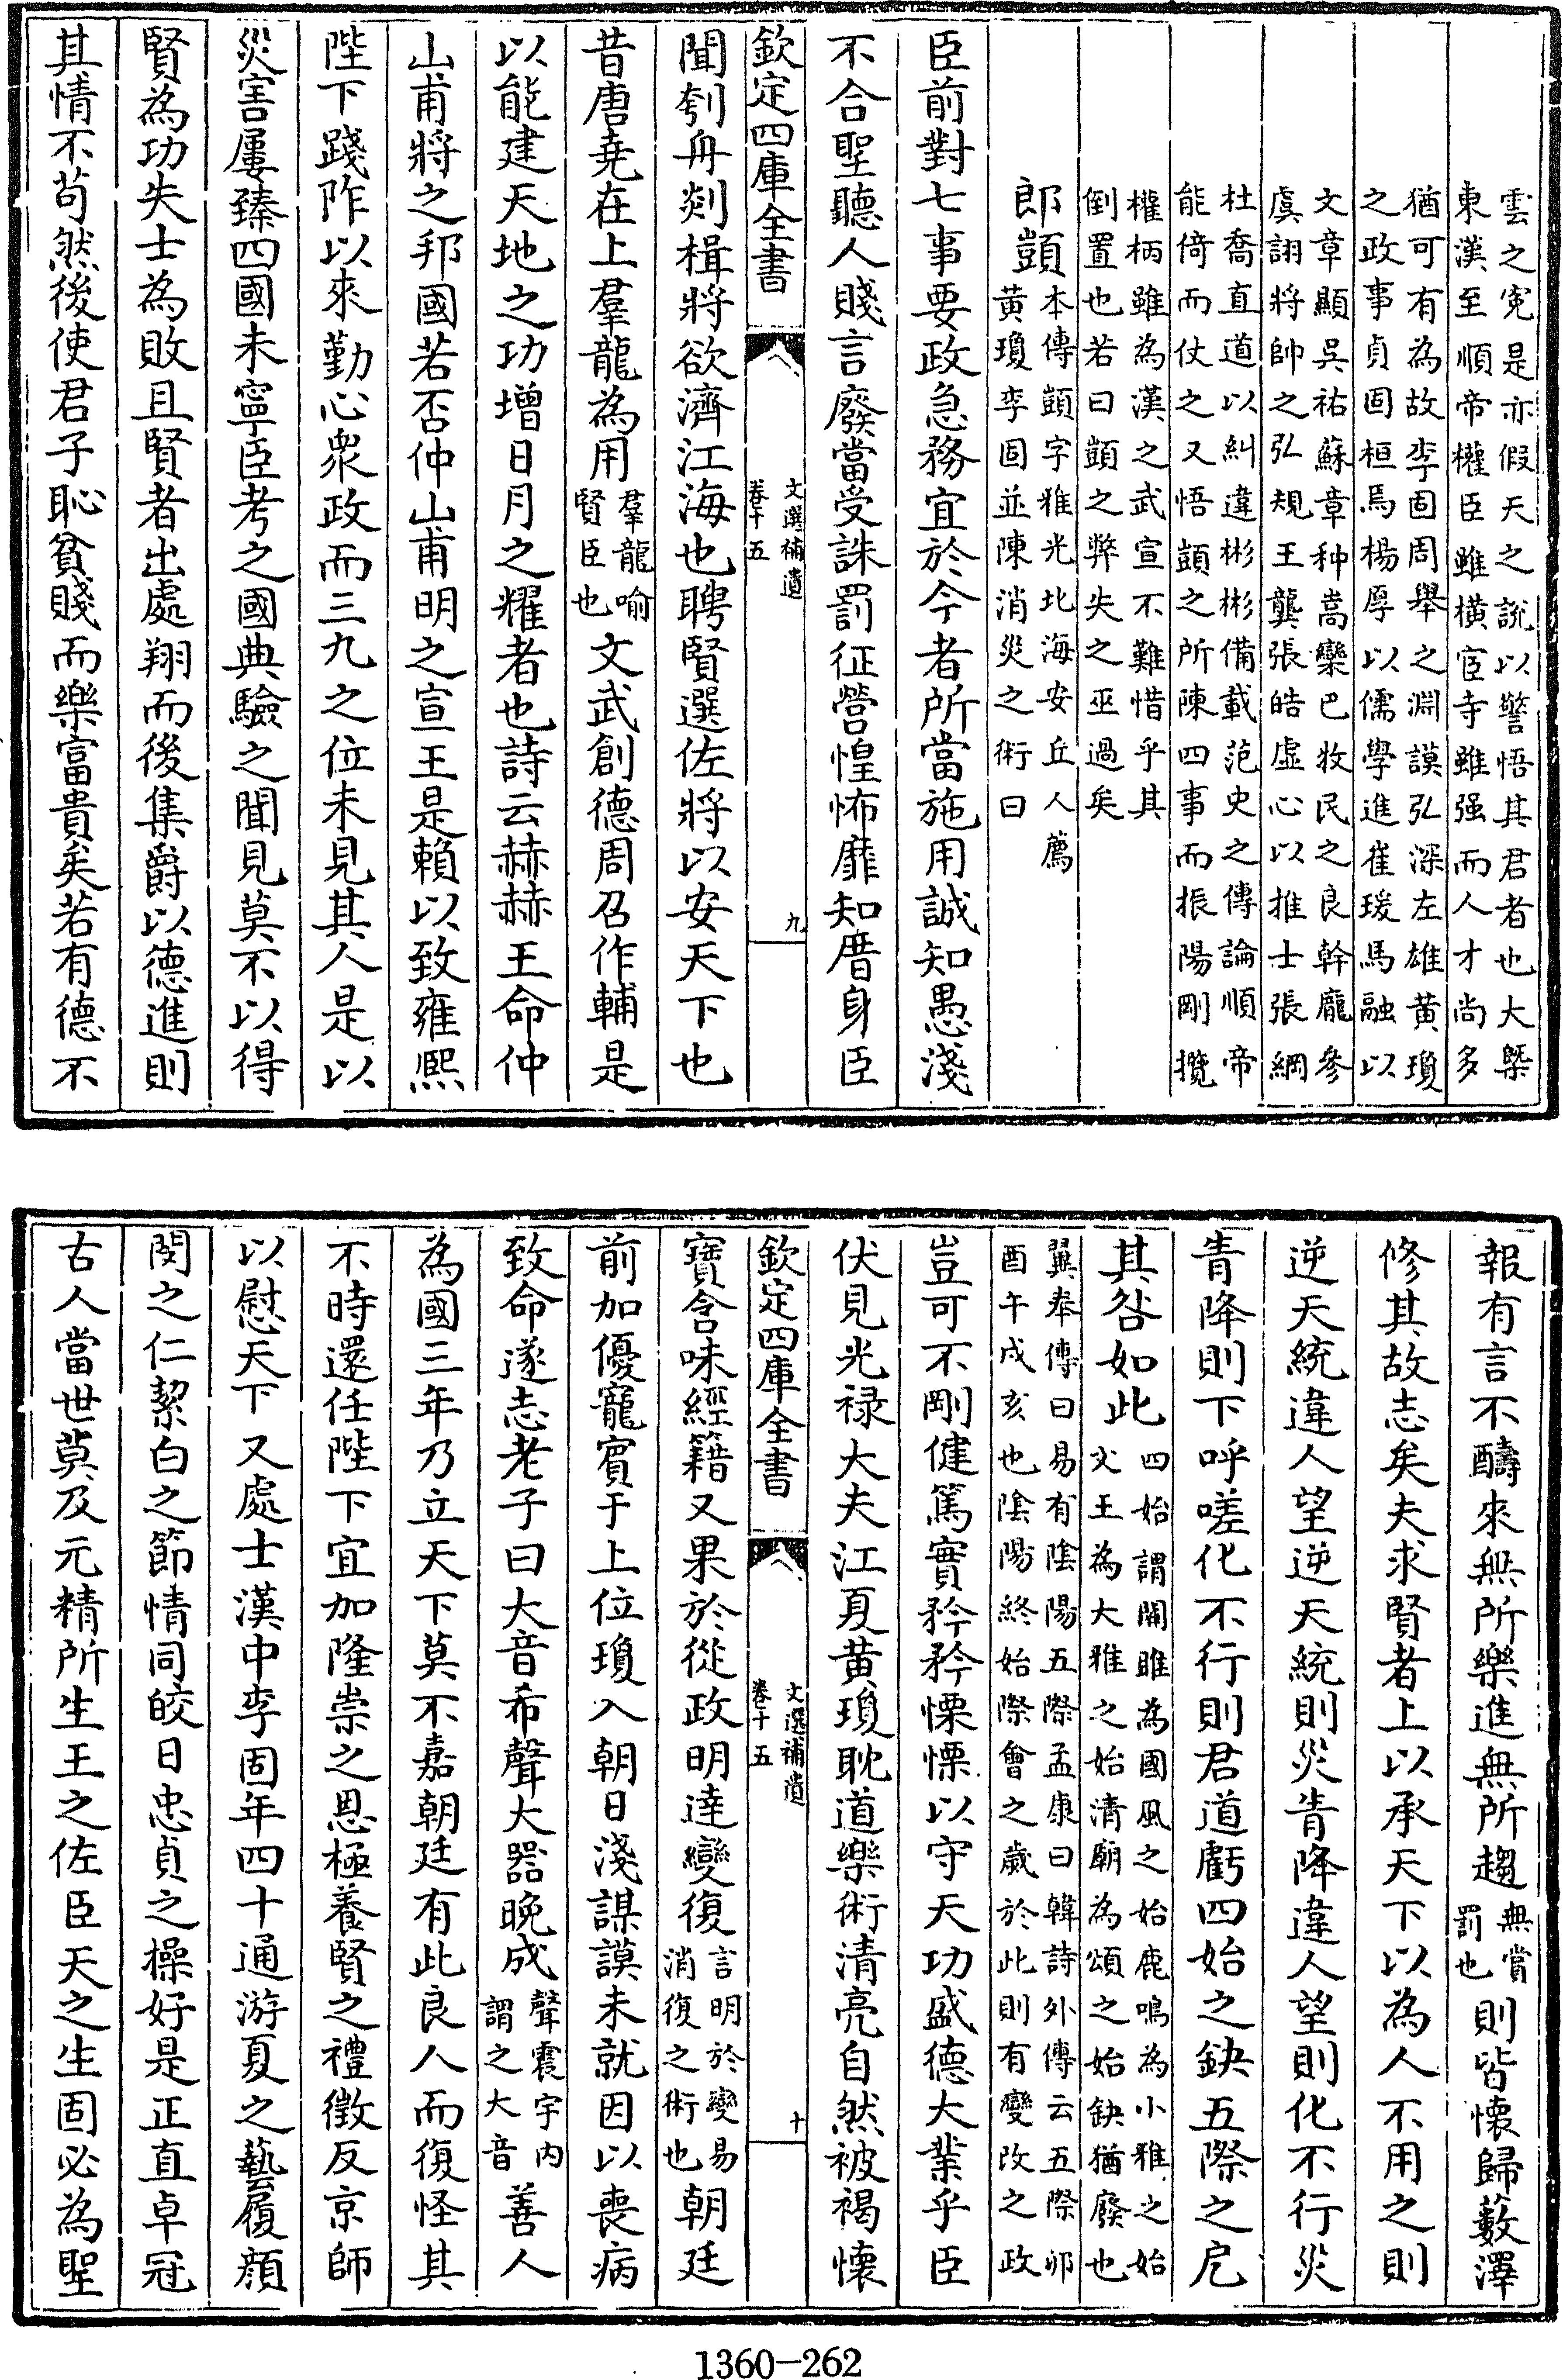 雲之寃是亦假天之説以警悟其君者也大槩
東漢至順帝權臣雖横宦寺雖强而人才尚多
猶可有為故李固周舉之淵謨弘深左雄黄瓊
之政事貞固桓焉楊厚以儒學進崔瑗馬融以
文章顯吳祐蘇章种暠欒巴牧民之良幹龐參
虞詡將帥之弘規王龔張皓虚心以推士張綱
杜喬直道以糾違彬彬備載范史之傳論順帝
能倚而仗之又悟顗之所陳四事而振陽剛攬
權柄雖為漢之武宣不難惜乎其
倒置也若曰顗之弊失之巫過矣
郎顗
本傳顗字雅光北海安丘人薦
黄瓊李固並陳消災之術曰
臣前對七事要政急務宜於今者所當施用誠知愚淺
不合聖聽人賤言廢當受誅罰征營惶怖靡知厝身臣
欽定四庫全書
文選補遺
卷十五
九
聞刳舟剡楫將欲濟江海也聘賢選佐將以安天下也
昔唐堯在上羣龍為用
羣龍喻
賢臣也
文武創德周召作輔是
以能建天地之功增日月之耀者也詩云赫赫王命仲
山甫將之邦國若否仲山甫明之宣王是賴以致雍熙
陛下踐阼以來勤心衆政而三九之位未見其人是以
災害屢臻四國未寧臣考之國典驗之聞見莫不以得
賢為功失士為敗且賢者出處翔而後集爵以德進則
其情不苟然後使君子恥貧賤而樂富貴矣若有德不
報有言不醻來無所樂進無所趨
無賞
罰也
則皆懷歸藪澤
修其故志矣夫求賢者上以承天下以為人不用之則
逆天統違人望逆天統則災眚降違人望則化不行災
眚降則下呼嗟化不行則君道虧四始之缺五際之戹
其咎如此
四始謂關雎為國風之始鹿鳴為小雅之始
文王為大雅之始清廟為頌之始缺猶廢也
翼奉傳曰易有陰陽五際孟康曰韓詩外傳云五際卯
酉午戌亥也陰陽終始際會之歲於此則有變改之政
豈可不剛健篤實矜矜慄慄以守天功盛德大業乎臣
伏見光禄大夫江夏黄瓊耽道樂術清亮自然被褐懷
欽定四庫全書
文選補遺
卷十五
十
寶含味經籍又果於從政明達變復
言明於變易
消復之術也
朝廷
前加優寵賓于上位瓊入朝日淺謀謨未就因以喪病
致命遂志老子曰大音希聲大器晚成
聲震宇内
謂之大音
善人
為國三年乃立天下莫不嘉朝廷有此良人而復怪其
不時還任陛下宜加隆崇之恩極養賢之禮徵反京師
以慰天下又處士漢中李固年四十通游夏之藝履顔
閔之仁絜白之節情同皎日忠貞之操好是正直卓冠
古人當世莫及元精所生王之佐臣天之生固必為聖
1360-262